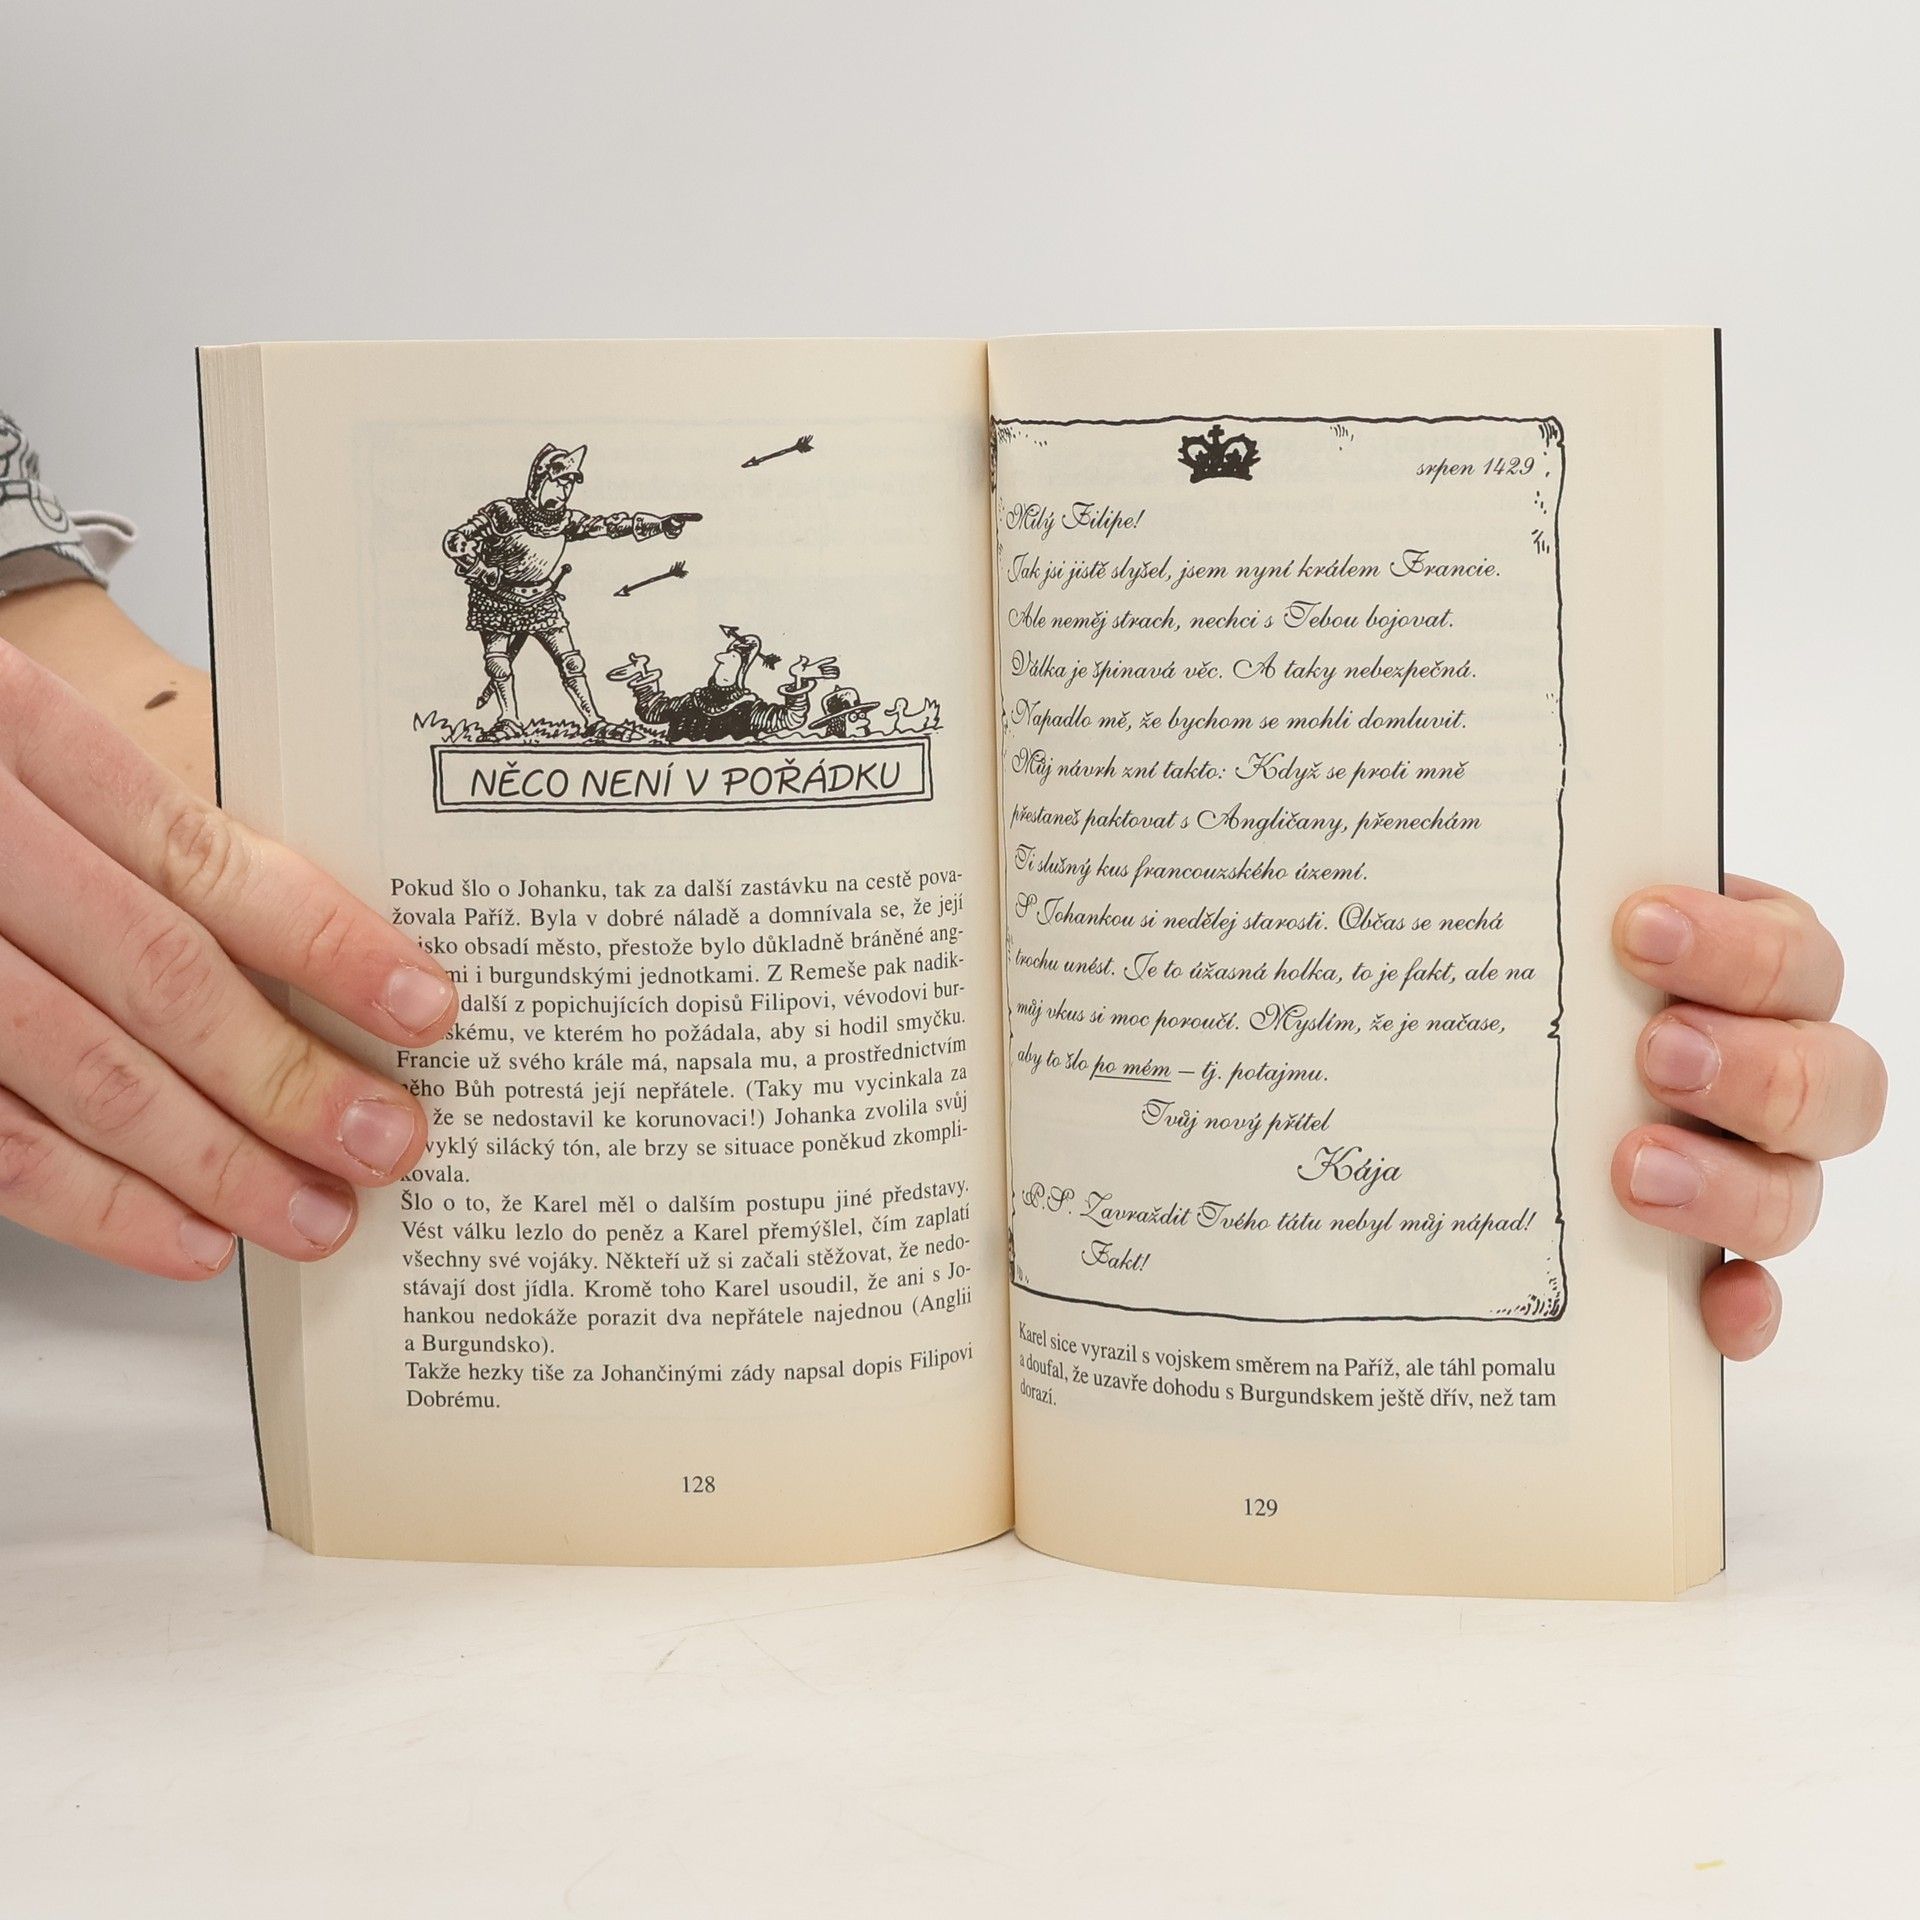 NĚCO NENÍ V POŘÁDKU
Pokud šlo o Johanku, tak za další zastávku na cestě pova-
žovala Paříž. Byla v dobré náladě a domnívala se, že její
obsadí město, přestože bylo důkladně bráněné ang-
i burgundskými jednotkami. Z Remeše pak nadik-
další z popichujících dopisů Filipovi, vévodovi bur-
skému, ve kterém ho požádala, aby si hodil smyčku.
Francie už svého krále má, napsala mu, a prostřednictvím
něho Bůh potrestá její nepřátele. (Taky mu vycinkala za
že se nedostavil ke korunovaci!) Johanka zvolila svůj
vyklý silácký tón, ale brzy se situace poněkud zkompli-
kovala.
Šlo o to, že Karel měl o dalším postupu jiné představy.
Vést válku lezlo do peněz a Karel přemýšlel, čím zaplatí
všechny své vojáky. Někteří už si začali stěžovat, že nedo-
stávají dost jídla. Kromě toho Karel usoudil, že ani s Jo-
hankou nedokáže porazit dva nepřátele najednou (Anglii
a Burgundsko).
Takže hezky tiše za Johančinými zády napsal dopis Filipovi
Dobrému.
128
srpen 1429
Milý Filipe!
Jak jsi jistě slyšel, jsem nyní králem Francie.
Ale neměj strach, nechci s Tebou bojovat.
Válka je špinavá věc. A taky nebezpečná.
Napadlo mě, že bychom se mohli domluvit.
Můj návrh zní takto: Když se proti mně
přestaneš paktovat s Angličany, přenechám
Ti slušný kus francouzského území.
S Johankou si nedělej starosti. Občas se nechá
trochu unést. Je to úžasná holka, to je fakt, ale na
můj vkus si moc poroučí. Myslím, že je načase,
aby to šlo po mém – tj. potajmu.
Tvůj nový přítel
Kája
P.S. Zavraždit Tvého tátu nebyl můj nápad!
Fakt!
Karel sice vyrazil s vojskem směrem na Paříž, ale táhl pomalu
a doufal, že uzavře dohodu s Burgundskem ještě dřív, než tam
dorazí.
129